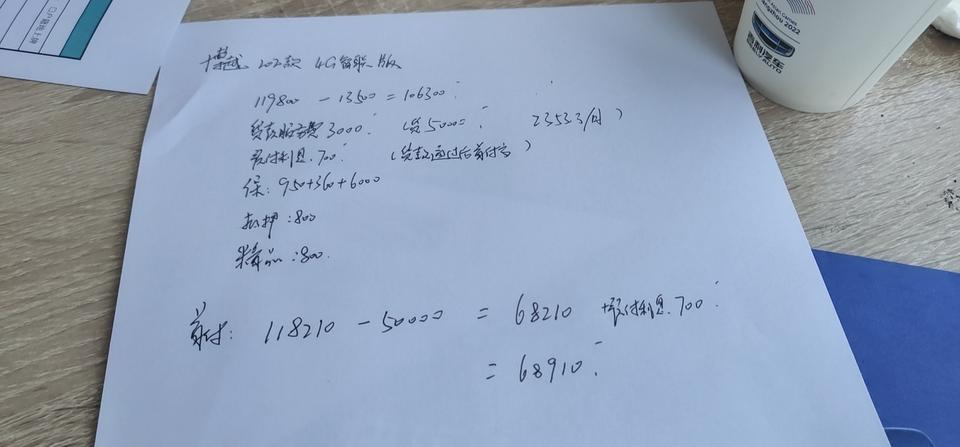 博越 202款 4G智联版
119800 - 13500 = 106300
贷款服务费 3000 (贷50000, 2353.3/月)
预付利息. 700 (贷款通过后首付方)
保: 950+360+6000
抵押: 800
精品: 800
首付: 118210 - 50000 = 68210 +预付利息. 700
= 68910
Hangzhou 2022
吉利汽车
GEELY AUTO